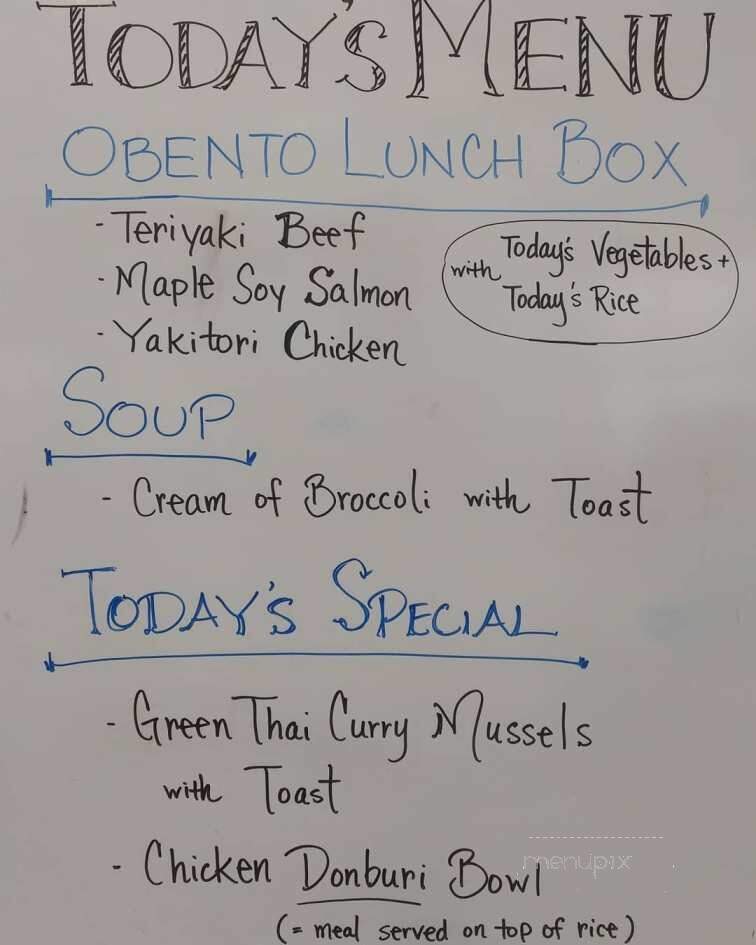 TODAY'S MENU
OBENTO LUNCH BOX
- Teriyaki Beef
- Maple Soy Salmon
- Yakitori Chicken
with Today's Vegetables +
Today's Rice
SOUP
- Cream of Broccoli with Toast
TODAY'S SPECIAL
- Green Thai Curry Mussels
with Toast
- Chicken Donburi Bowl
(= meal served on top of rice)
menupix